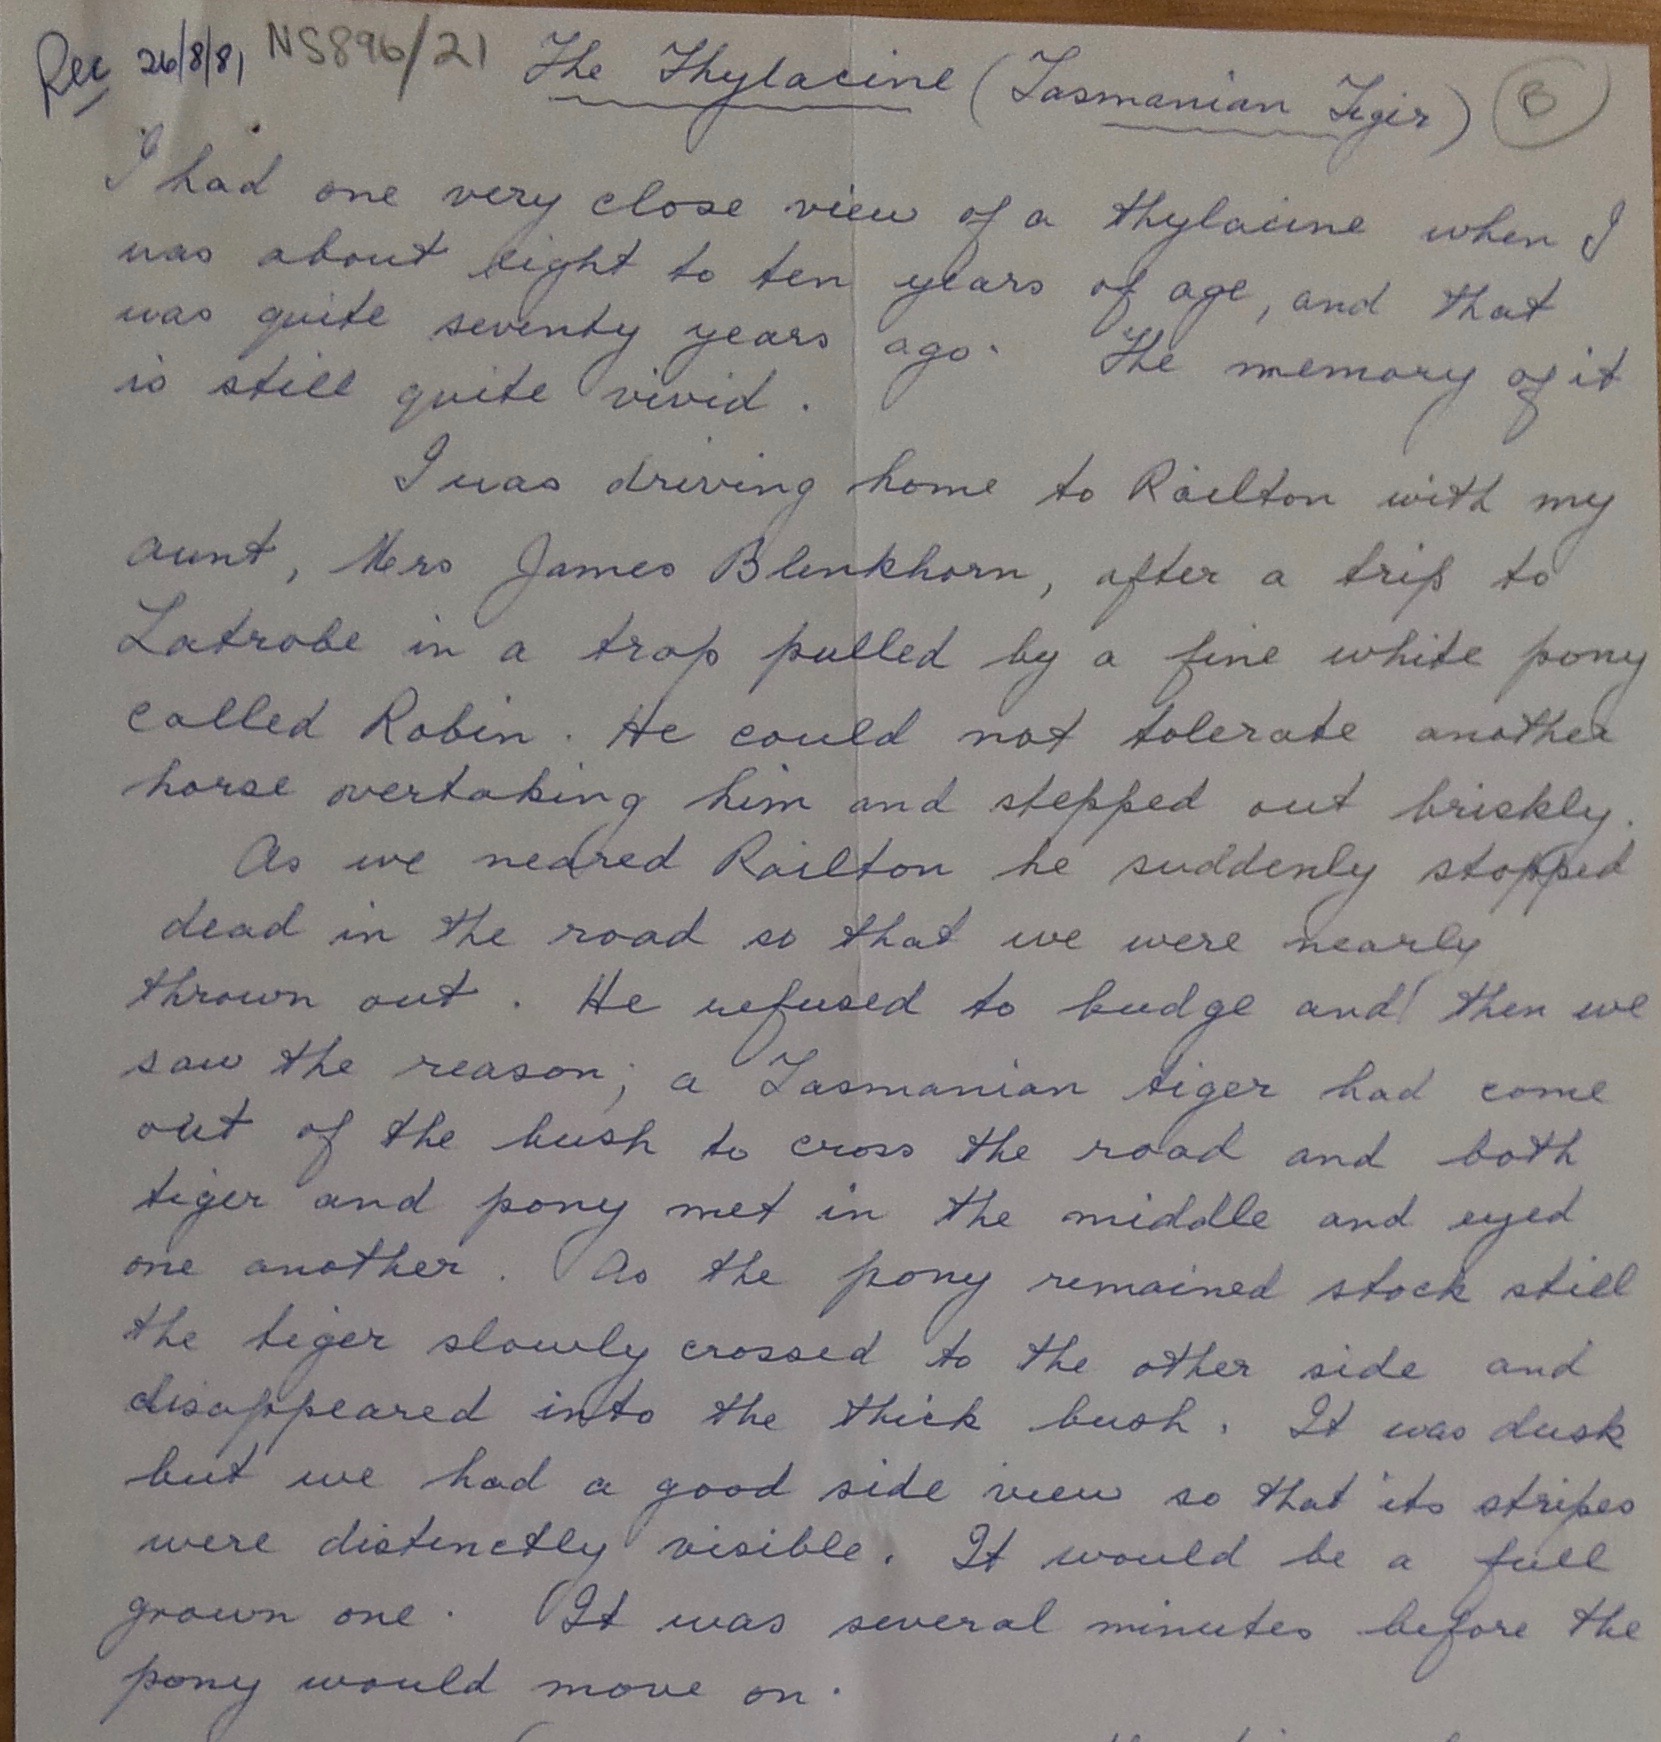 Rec 26/8/81 NS896/21 The Thylacine (Tasmanian Tiger) B
I had one very close view of a thylacine when I
was about eight to ten years of age, and that
was quite seventy years ago. The memory of it
is still quite vivid.
I was driving home to Railton with my
aunt, Mrs James Blenkhorn, after a trip to
Latrobe in a trap pulled by a fine white pony
called Robin. He could not tolerate another
horse overtaking him and stepped out briskly.
As we neared Railton he suddenly stopped
dead in the road so that we were nearly
thrown out. He refused to budge and then we
saw the reason; a Tasmanian tiger had come
out of the bush to cross the road and both
tiger and pony met in the middle and eyed
one another. As the pony remained stock still
the tiger slowly crossed to the other side and
disappeared into the thick bush. It was dusk
but we had a good side view so that its stripes
were distinctly visible. It would be a full
grown one. It was several minutes before the
pony would move on.